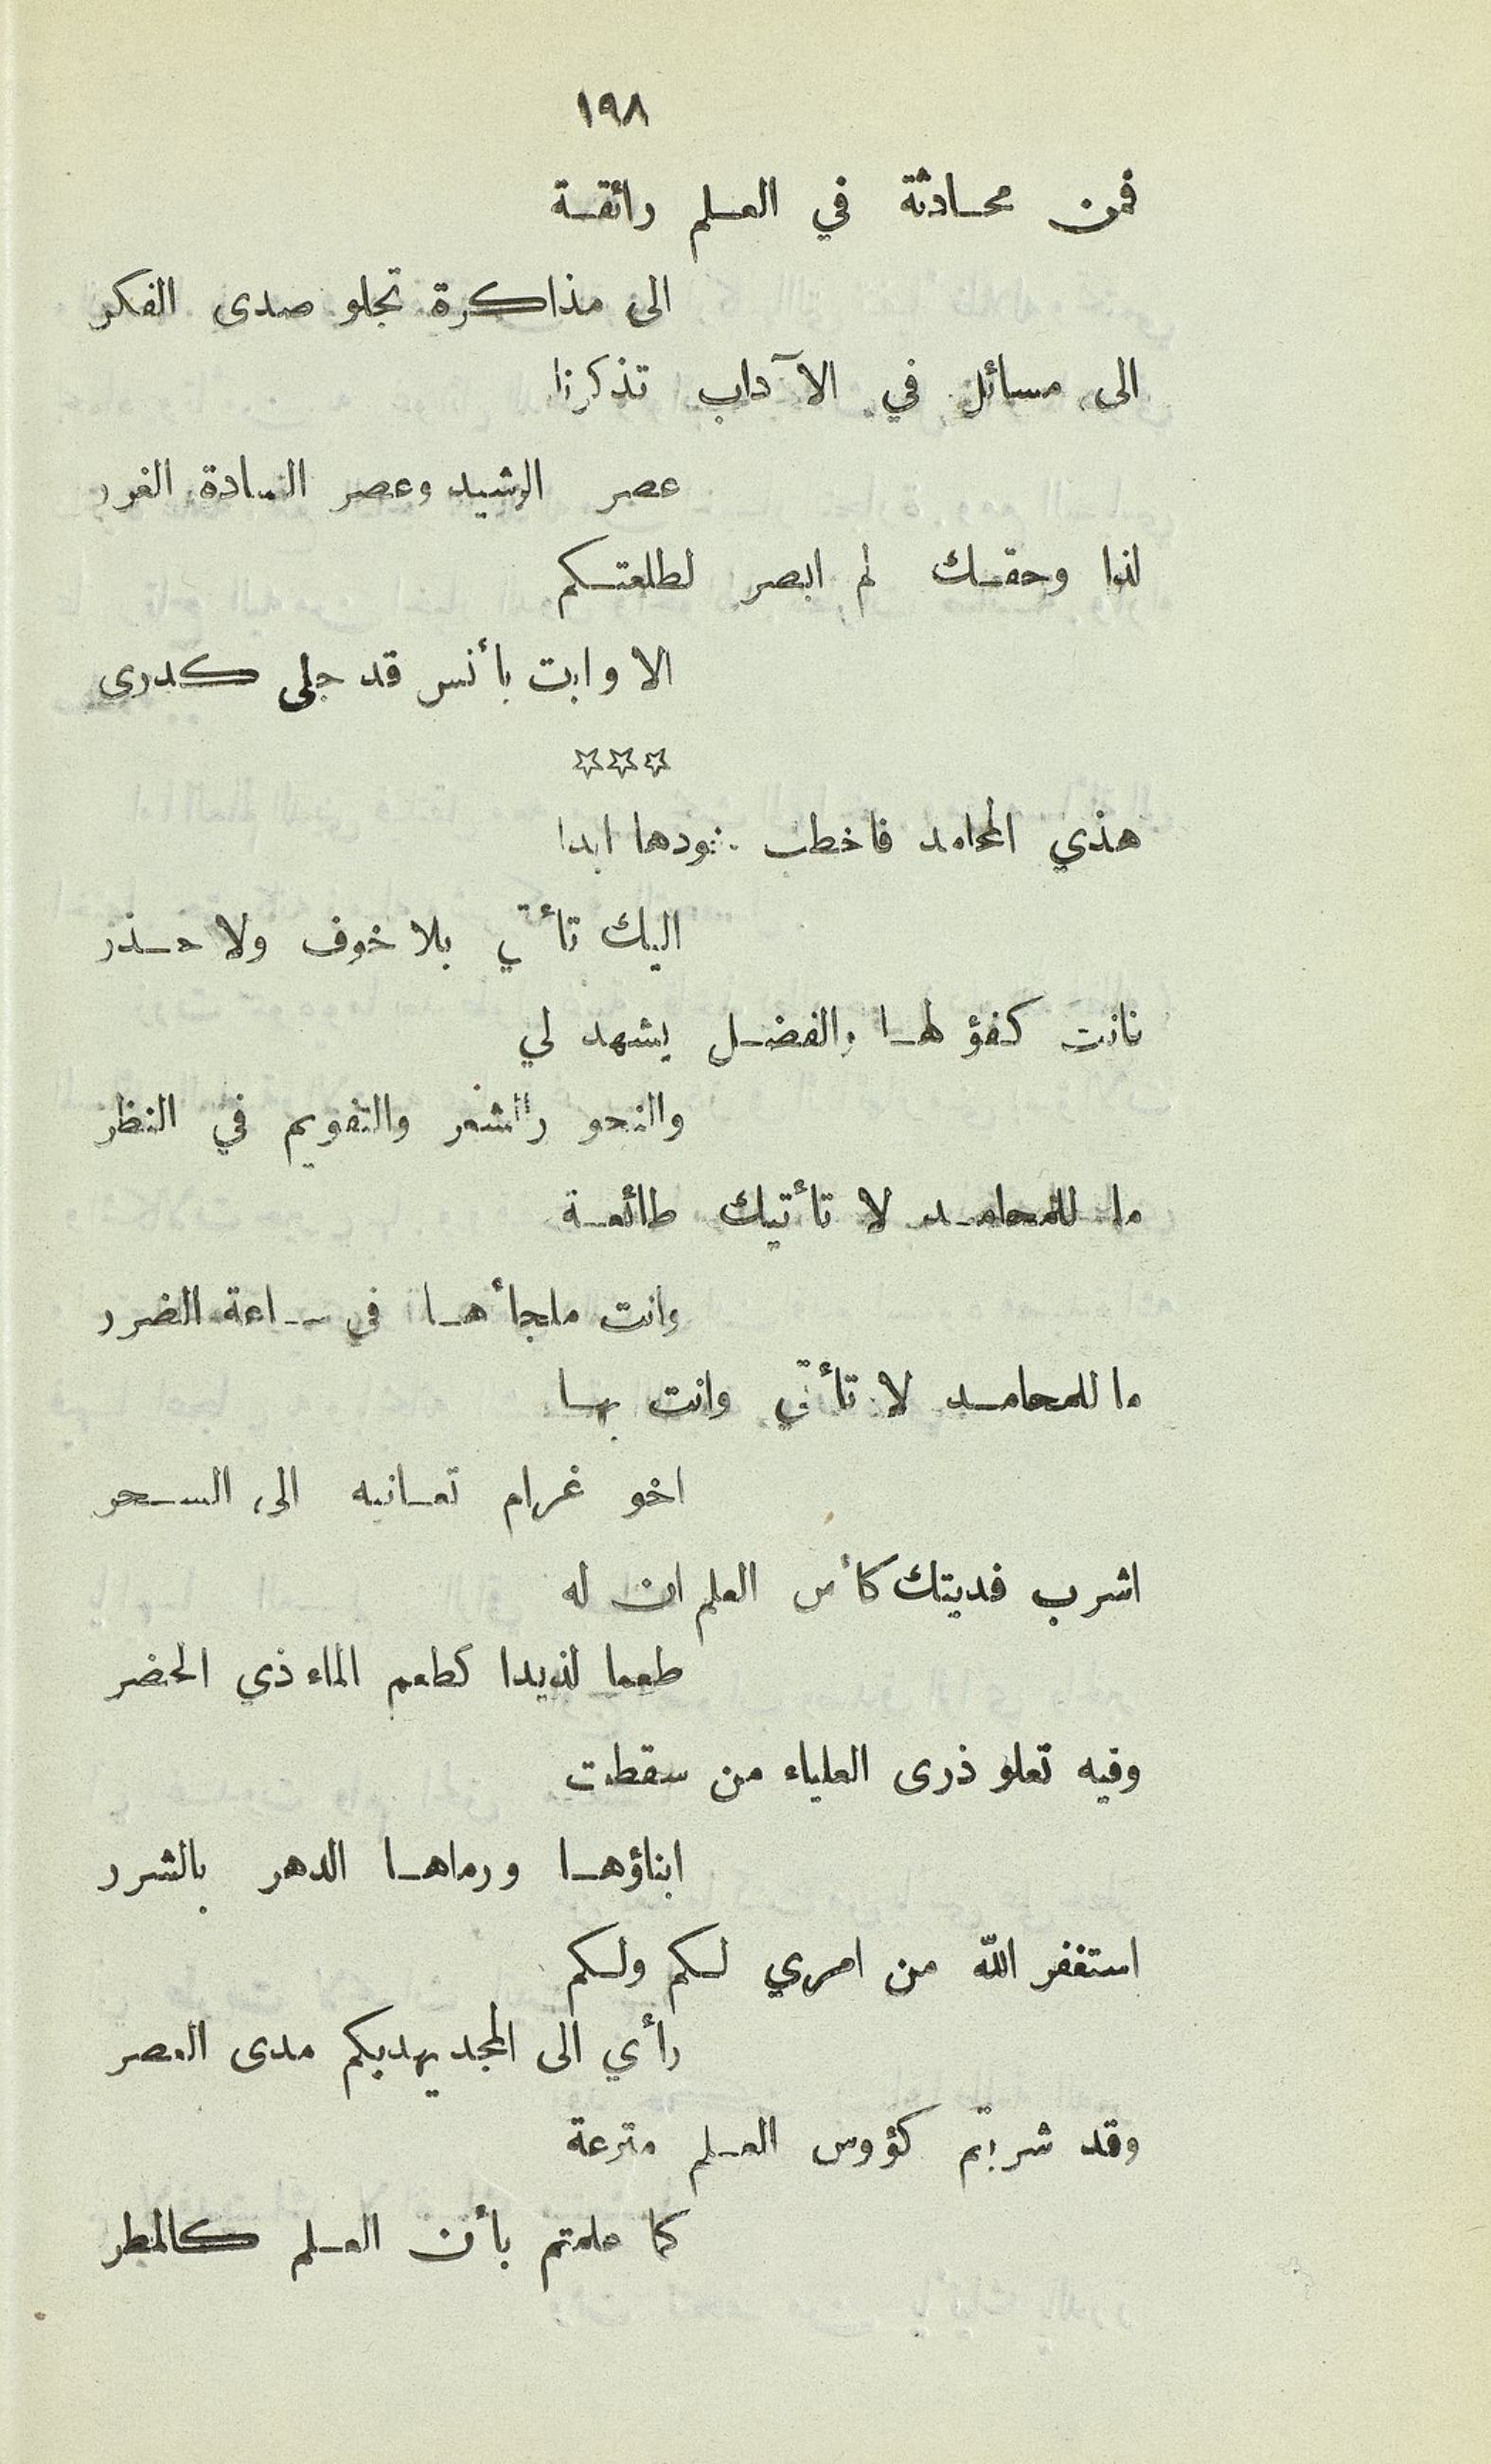 ١٩٨
فمن محادثة في العلم رائقة
الى مذاكرة تجلو صدى الفكر
الى مسائل في الآداب تذكرنا
عصر الرشيد وعصر السادة الغرر
لذا وحقك لم ابصر لطلعتكم
الا وابت بأنس قد جلى كدرى
☆☆☆
هذي المحامد فاخطب ودها ابدا
اليك تأتي بلا خوف ولا حذر
فانت كفؤ لها والفضل يشهد لي
والنحو والشعر والتقويم في النظر
ما للمحامد لا تأتيك طائعة
وانت ملجأها في ساعة الضرر
ما للمحامد لا تأتي وانت بها
اخو غرام تعانيه الى السحر
اشرب فديتك كأس العلم ان له
طعما لذيدا كطعم الماء ذي الخضر
وفيه تعلو ذرى العلياء من سقطت
ابناؤها ورماها الدهر بالشرر
استغفر الله من امري لكم ولكم
رأي الى المجد يهديكم مدى العصر
وقد شربتم كؤوس العلم مترعة
كما علمتم بأن العلم كالمطر